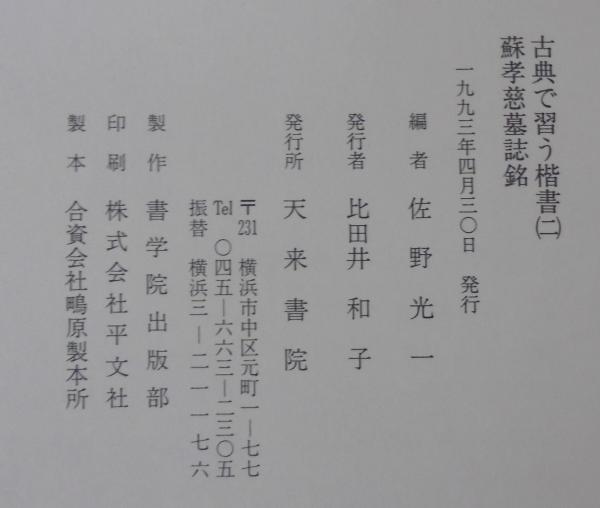 古典で習う楷書㈡
蘇孝慈墓誌銘
一九九三年四月三〇日 発行
編者 佐野光一
発行者 比田井和子
発行所 天来書院
〒231 横浜市中区元町一―七七
Tel 〇四五―六六三―二三〇五
振替 横浜三―二一一七六
製作 書学院出版部
印刷 株式会社平文社
製本 合資会社鴫原製本所